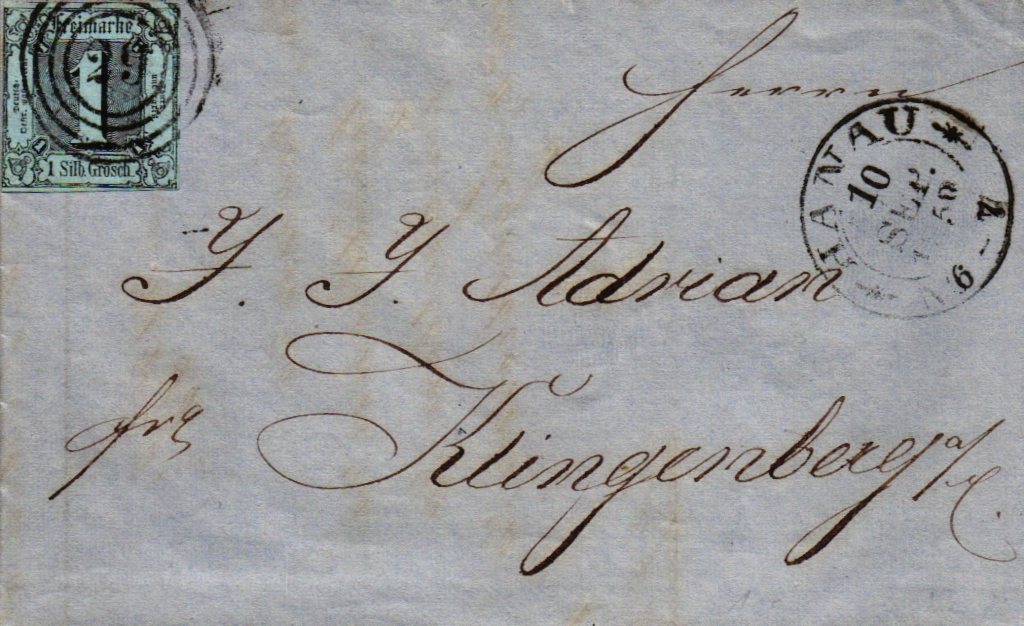 Freimarke
29
1
1 Silb. Grosch.
Herrn
HANAU
10
SEP.
J. J. Adrian
frc
Klingenberg a/